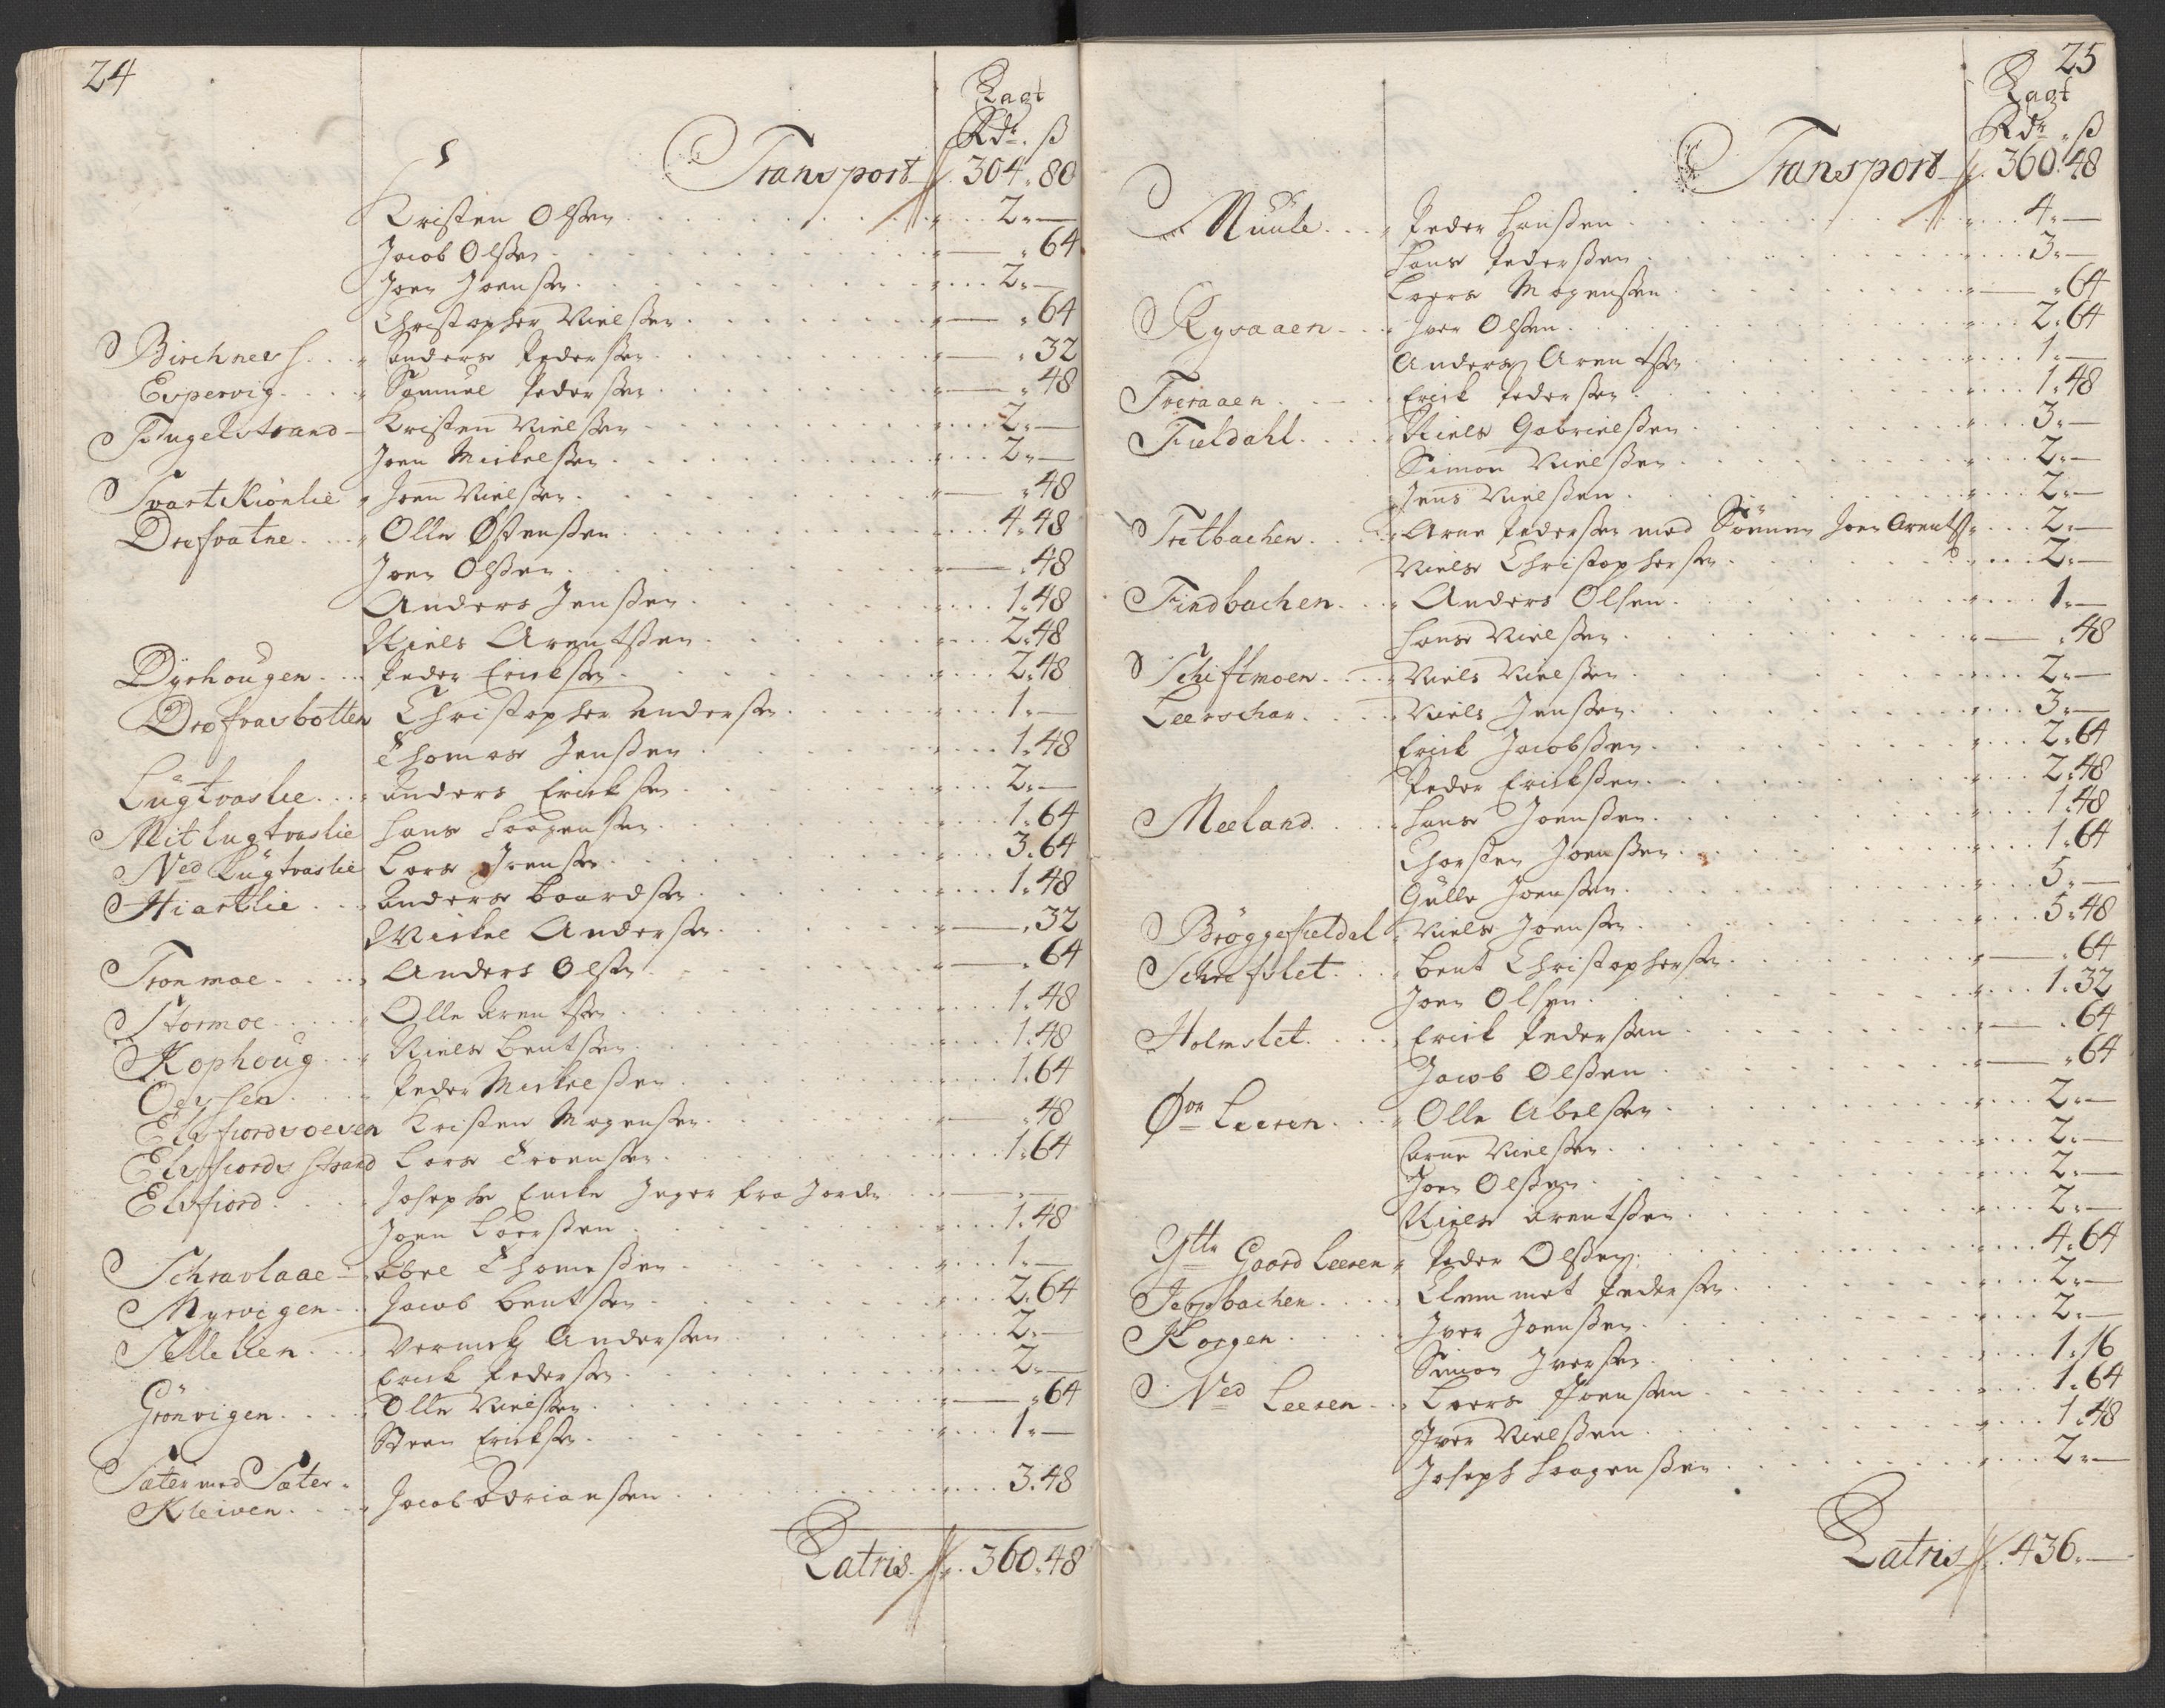 24
Lagt
Rdr. ß
Transport 304. 80
Kristen Olsen 2. —
Jacob Olsen — . 64
Joen Joensen 2. —
Christopher Nielsen — . 64
Birchnes Anders Pedersen — . 32
Espervig Samuel Pedersen — . 48
Fugelstrand Kristen Nielsen 2. —
Joen Mickelsen 2. —
Svartkiönlie Joen Nielsen — . 48
Drefvatne Olle Østensen 4. 48
Joen Olsen — . 48
Anders Jensen 1. 48
Niels Arentsen 2. 48
Dyrhougen Peder Ericksen 2. 48
Drefvasbotten Christopher Andersen 1. —
Thomas Jensen 1. 48
Lugtvaslie Anders Ericksen 2. —
Mit lugtvaslie Hans Haagensen 1. 64
Ned Lugtvaslie Lars Jrensen 3. 64
Hiartlie Anders Baardsen 1. 48
Mickel Andersen — . 32
Tronmoe Anders Olsen — . 64
Stormoe Olle Arentsen 1. 48
Kophoug Niels Bentsen 1. 48
Oersen Peder Mickelsen 1. 64
Elsfiordsoeren Kristen Mogensen — . 48
Elsfiords strand Lars Troensen 1. 64
Elsfiord Josephs Encke Inger fra Jorde — . —
Joen Larsen 1. 48
Schravlaae Abel Thomesen 1. —
Myrvigen Jacob Bentsen 2. 64
Sellelien Andersen 2. —
Erick Pedersen 2. —
Grönvigen Olle Nielsen — . 64
Steen Ericksen 1. —
Sæter med Sæter-
Kleiven Jacob Adriansen 3. 48
Latris 360. 48
25
Lagt
Rdr. ß
Transport 360. 48
Muule Peder Hansen 4. —
Hans Pedersen 3. —
Laers Mogensen — . 64
Rysaaen Iver Olsen 2. 64
Anders Arentsen 1. —
Treraaen Erick Pedersen 1. 48
Fieldahl Niels Gabrielsen 3. —
Simon Nielsen 2. —
Jens Nielsen 2. —
Tretbachen Arne Pedersen med Sönnen Joen Arents 2. —
Niels Christophersen 2. —
Findbachen Anders Olsen 1. —
Hans Nielsen — . 48
Schiftmoen Niels Nielsen 2. —
Leerschar Niels Jensen 3. —
Erick Jacobsen 2. 64
Peder Ericksen 2. 48
Meeland Hans Joensen 1. 48
Thorsten Joensen 1. 64
Gulle Joensen 5. —
Bröggefieldal Niels Joensen 5. 48
Schrefslet Bent Christophersen — . 64
Joen Olsen 1. 32
Holmslet Erick Pedersen — . 64
Jacob Olsen — . 64
Leeren Olle Abelsen 2. —
Arne Nielsen 2. —
Joen Olsen 2. —
Niels Arentsen 2. —
Gaard Leeren Peder Olsen 4. 64
Jepsbachen Clemmet Pedersen 2. —
Korgen Iver Joensen 2. —
Simon Iversen 1. 16
Ned Leeren Laers Joensen 1. 64
Iver Nielsen 1. 48
Joseph Haagensen 2. —
Latris 436. —